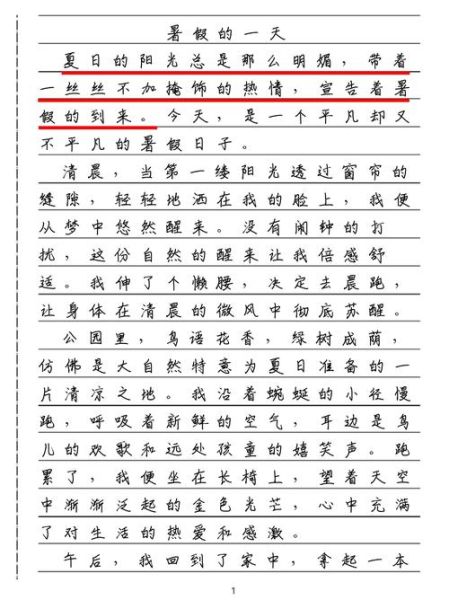 暑假的一天
夏日的阳光总是那么明媚，带着
一丝丝不加掩饰的热情，宣告着暑
假的到来。今天，是一个平凡却又
不平凡的暑假日子。
清晨，当第一缕阳光透过窗帘的
缝隙，轻轻地洒在我的脸上，我便
从梦中悠然醒来。没有闹钟的打
扰，这份自然的醒来让我倍感舒
适。我伸了个懒腰，决定去晨跑，
让身体在清晨的微风中彻底苏醒。
公园里，鸟语花香，绿树成荫，
仿佛是大自然特意为夏日准备的一
片清凉之地。我沿着蜿蜒的小径慢
跑，呼吸着新鲜的空气，耳边是鸟
儿的欢歌和远处孩童的嬉笑声。跑
累了，我便坐在长椅上，望着天空
中渐渐泛起的金色光芒，心中充满
了对生活的热爱和感激。
午后，我回到了家中，拿起一本
1